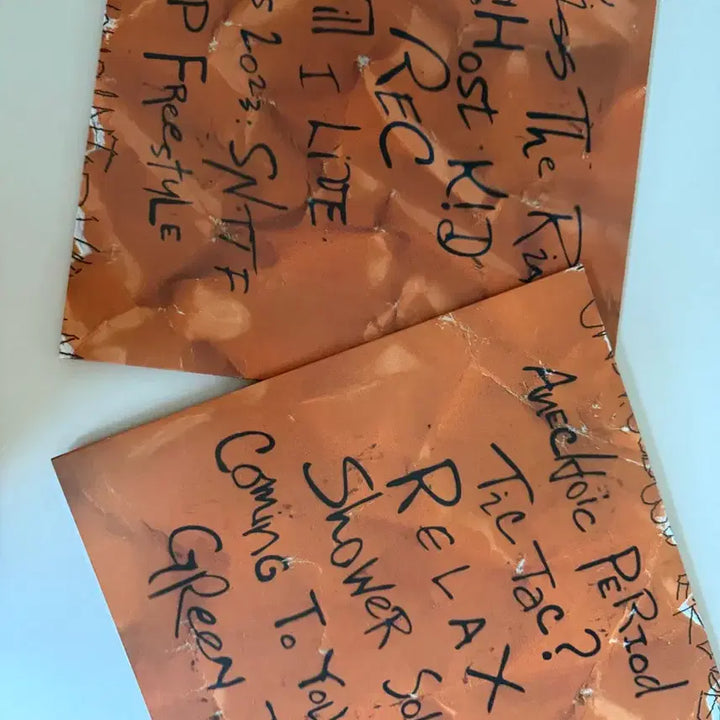 iss The Rin
GHost. K!D
REC
ill I LiVE
s 2023. SNTF
P FReestyLE
AnecHoic PERiod
Tic Tac?
RELAX
SHoWeR Sol
Coming To You
GReen